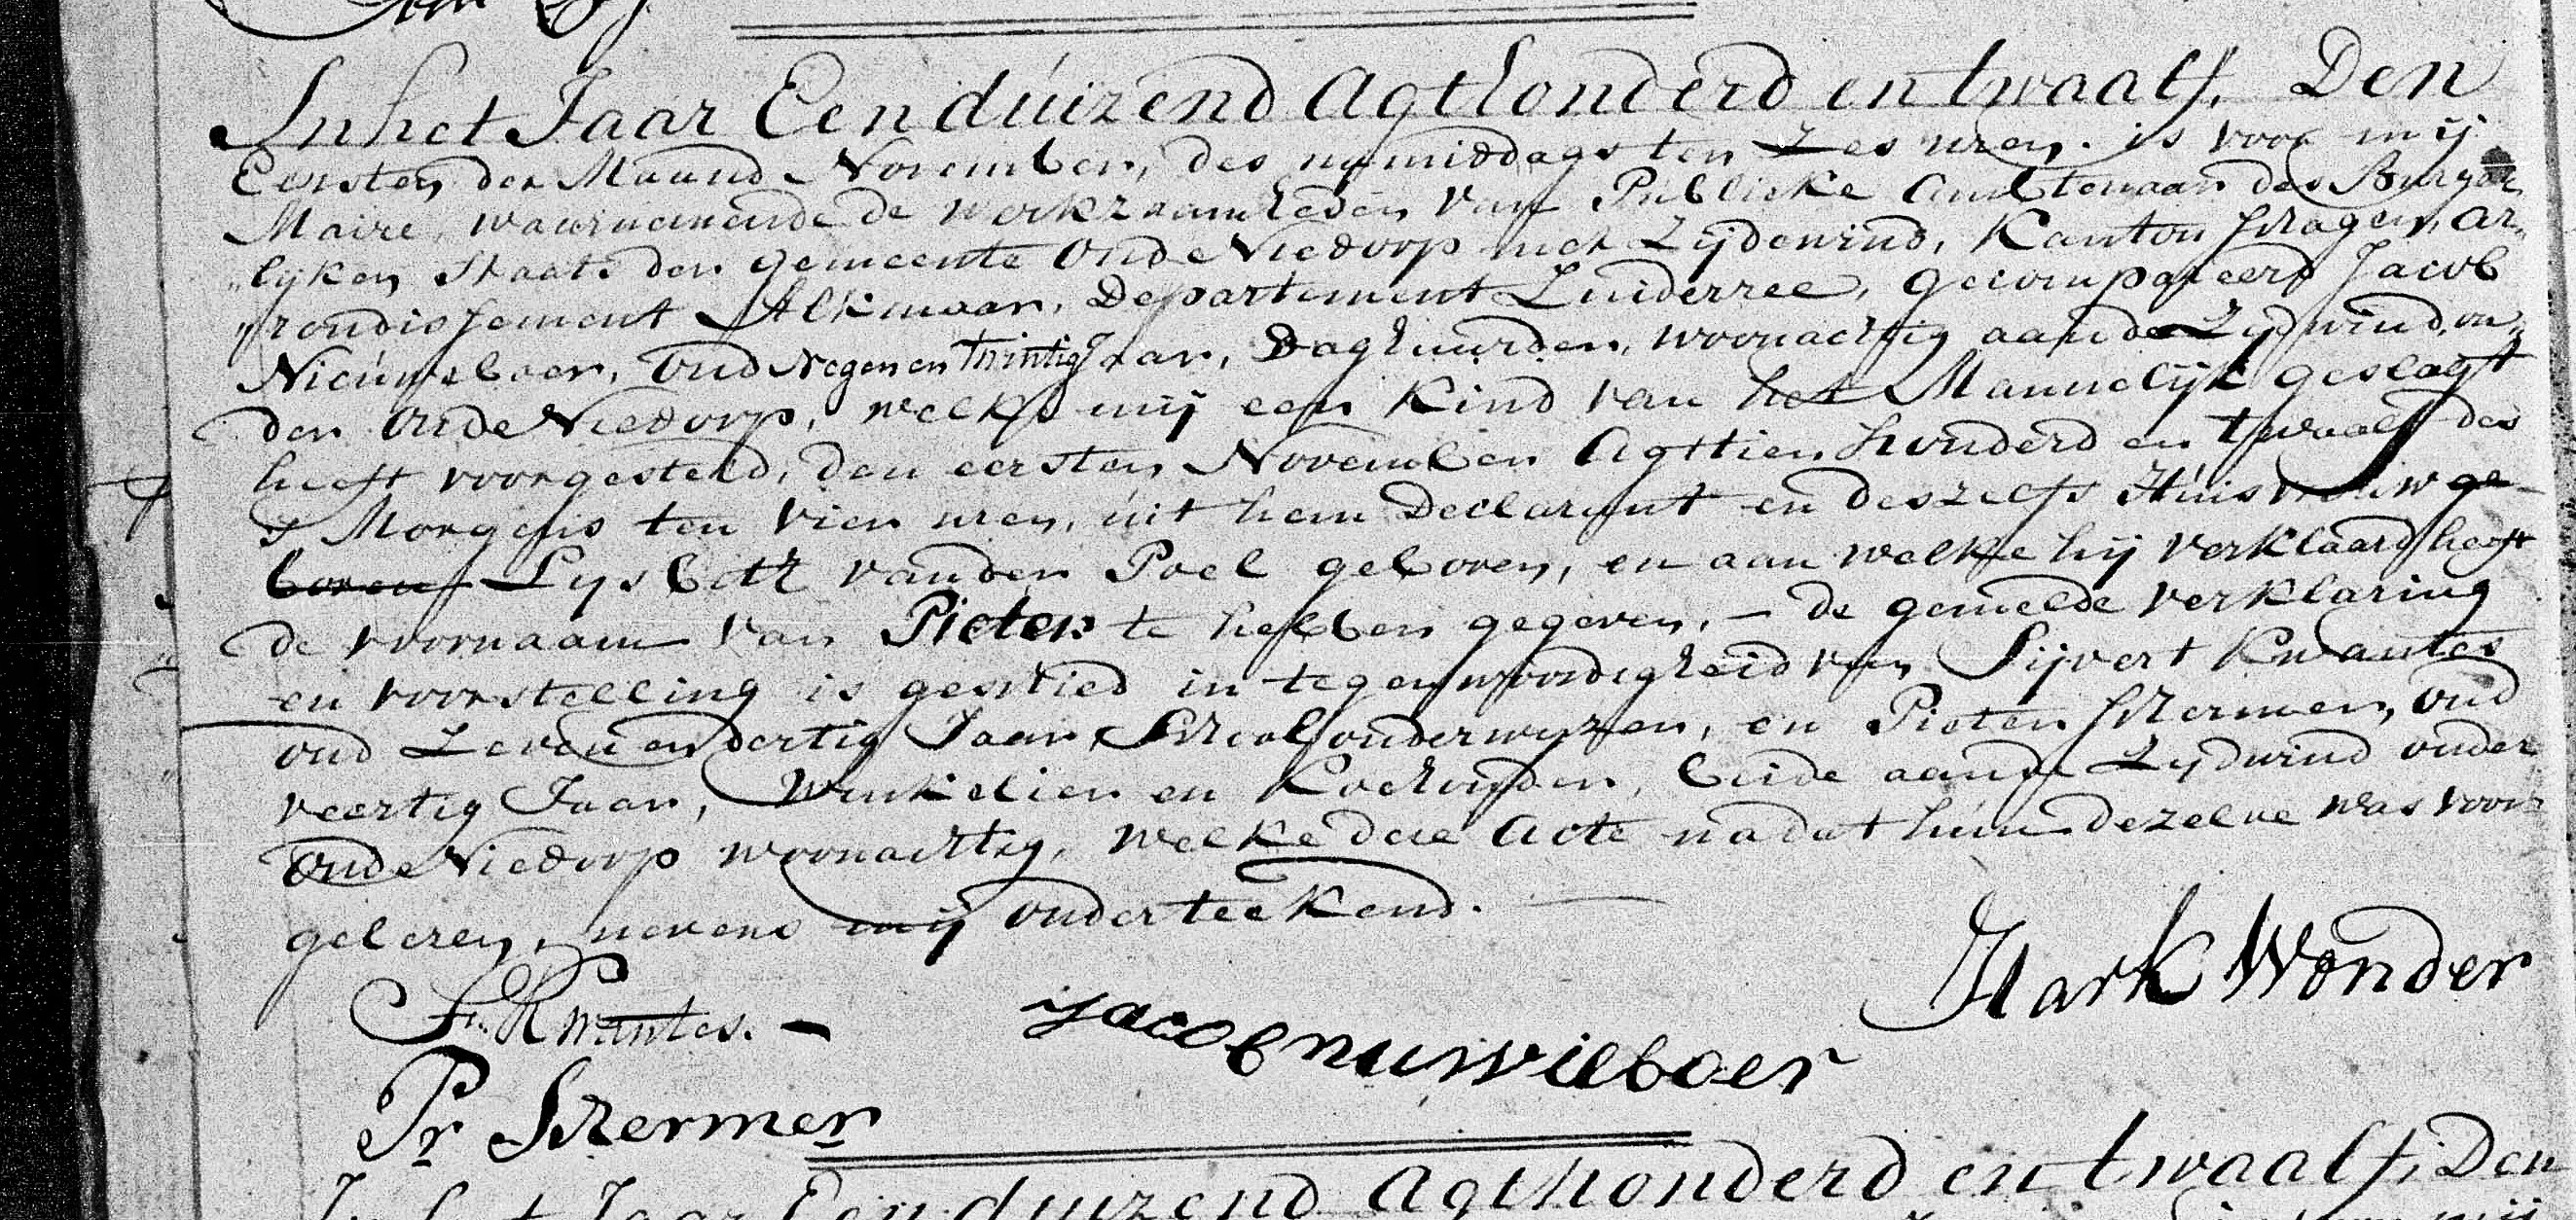 In het Jaar Een duizend Agthonderd en twaalf, Den
Eersten der Maand November, des namiddags ten Zes uren. is voor mij
Maire, waarneemende de werkzaamheden van Publieke Amtenaar des Burger
"lijken Staats der gemeente Oude Niedorp met Zijdewind, Kanton Schagen, Ar"
"rondissement Alkmaar, Departement Zuiderzee, gecompareerd Jacob
Nieuwboer, oud Negen en Twintig Jaar, Daghuurder, woonachtig aan de Zijdwind, on"
der Oude Niedorp, welke mij een Kind van het Mannelijk geslagt
heeft voorgesteld, den eersten November Agttien honderd en twaalf des
s Morgens ten vier uren, uit hem Declarant en deszelfs Huisvrouw ge-
boren Lysbeth van der Poel geboren, en aan welke hij verklaard heeft
de voornaam van Pieter te hebben gegeven, – de gemelde verklaring
en voorstelling is geschied in tegenwoordigheid van Sijvert Kwantes
oud Zeven en dertig Jaar, Schoolonderwyzer, en Pieter Schermer, oud
veertig Jaar, Winkelier en Koehouder, beide aan de Zijdwind onder
Oude Niedorp woonachtig, welke deze Acte nadat hun dezelve was voor
gelezen, nevens mij onderteekend. —
Mark Wonder
S. Kwantes. –
Jacob nuwieboer
Pr Schermer
In het Jaar Een duizend Agthonderd en twaalf, Den